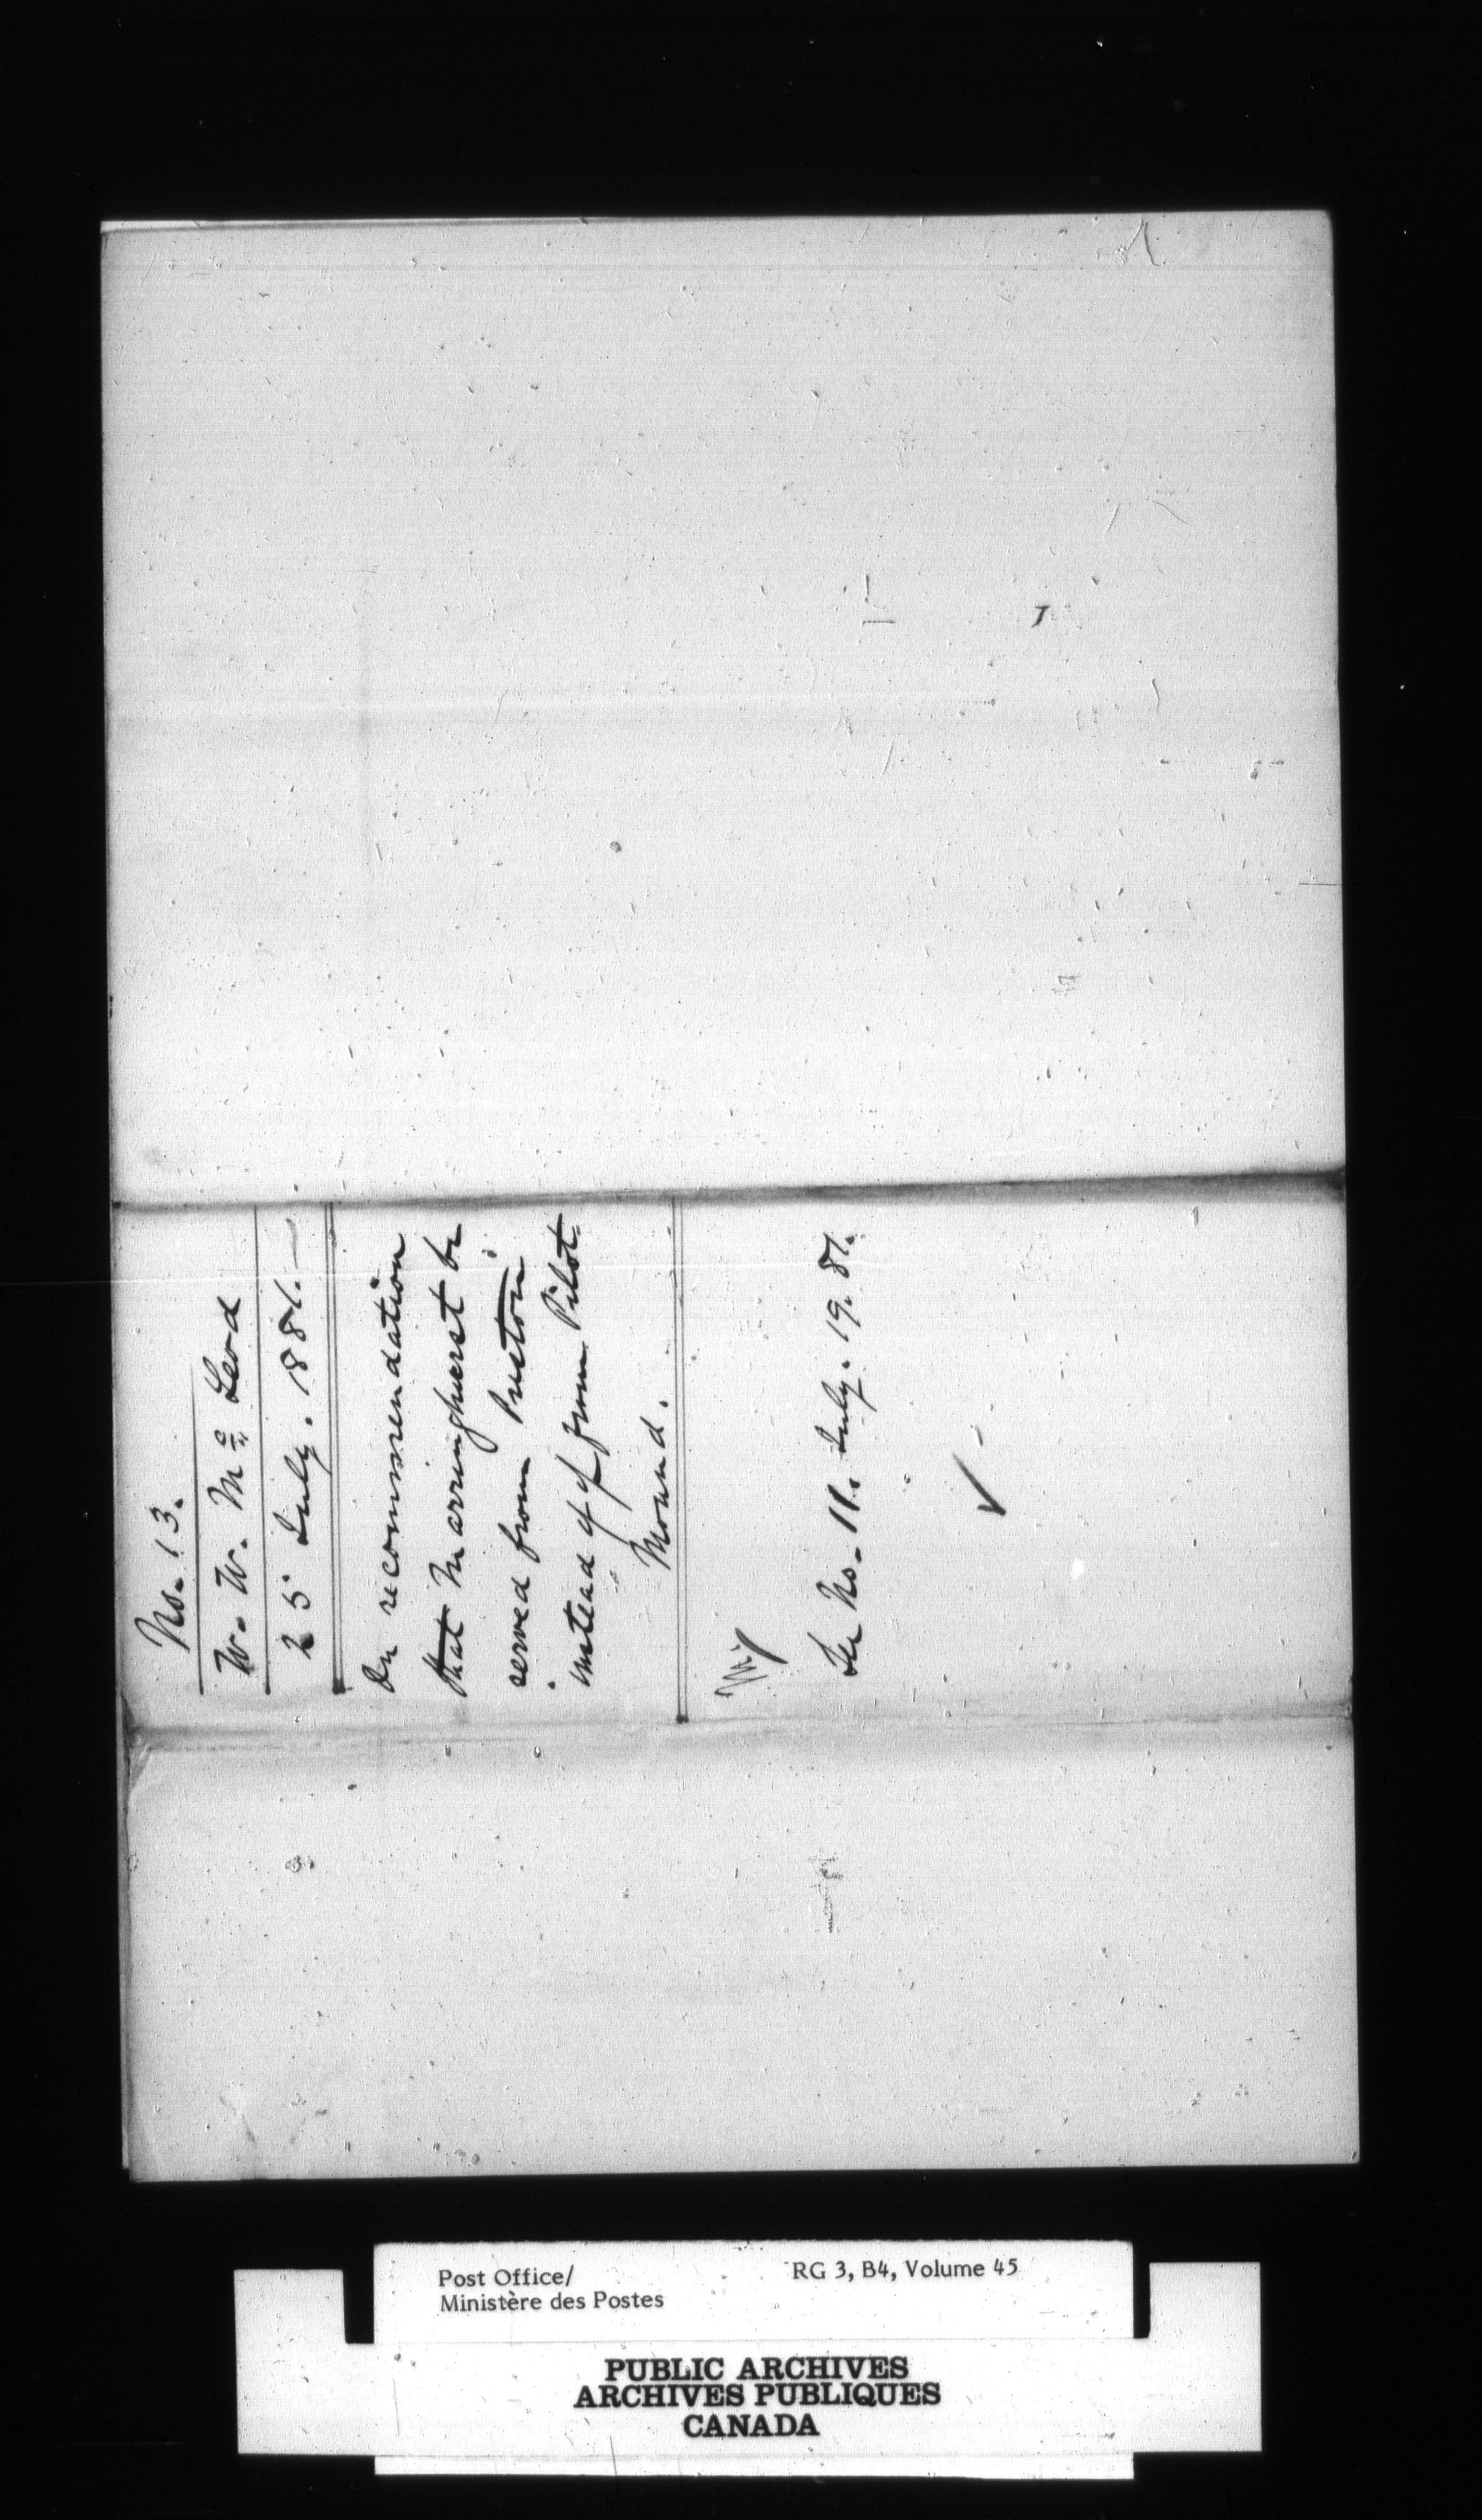 No. 13.
W. W. Mc Leod
25 July. 1881.—
In recommendation
that Marringhurst be
served from Preston
instead of from Pilot
Mound.
See No. 11. July. 19. 81.
Post Office/
Ministère des Postes
RG 3, B4, Volume 45
PUBLIC ARCHIVES
ARCHIVES PUBLIQUES
CANADA